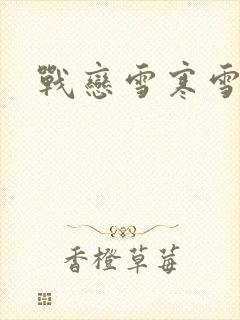 戰戀雪寒雪
香橙草莓